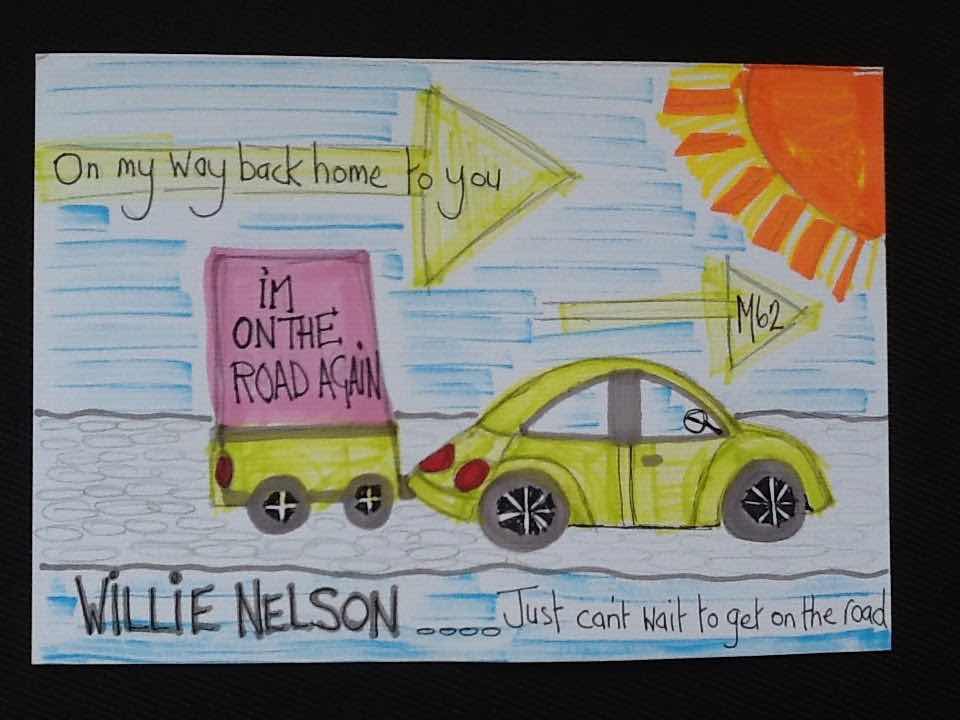 On my way back home to you
M62
iM
ON THE
ROAD AGAiN
WiLLiE NELSON .... Just can't wait to get on the road